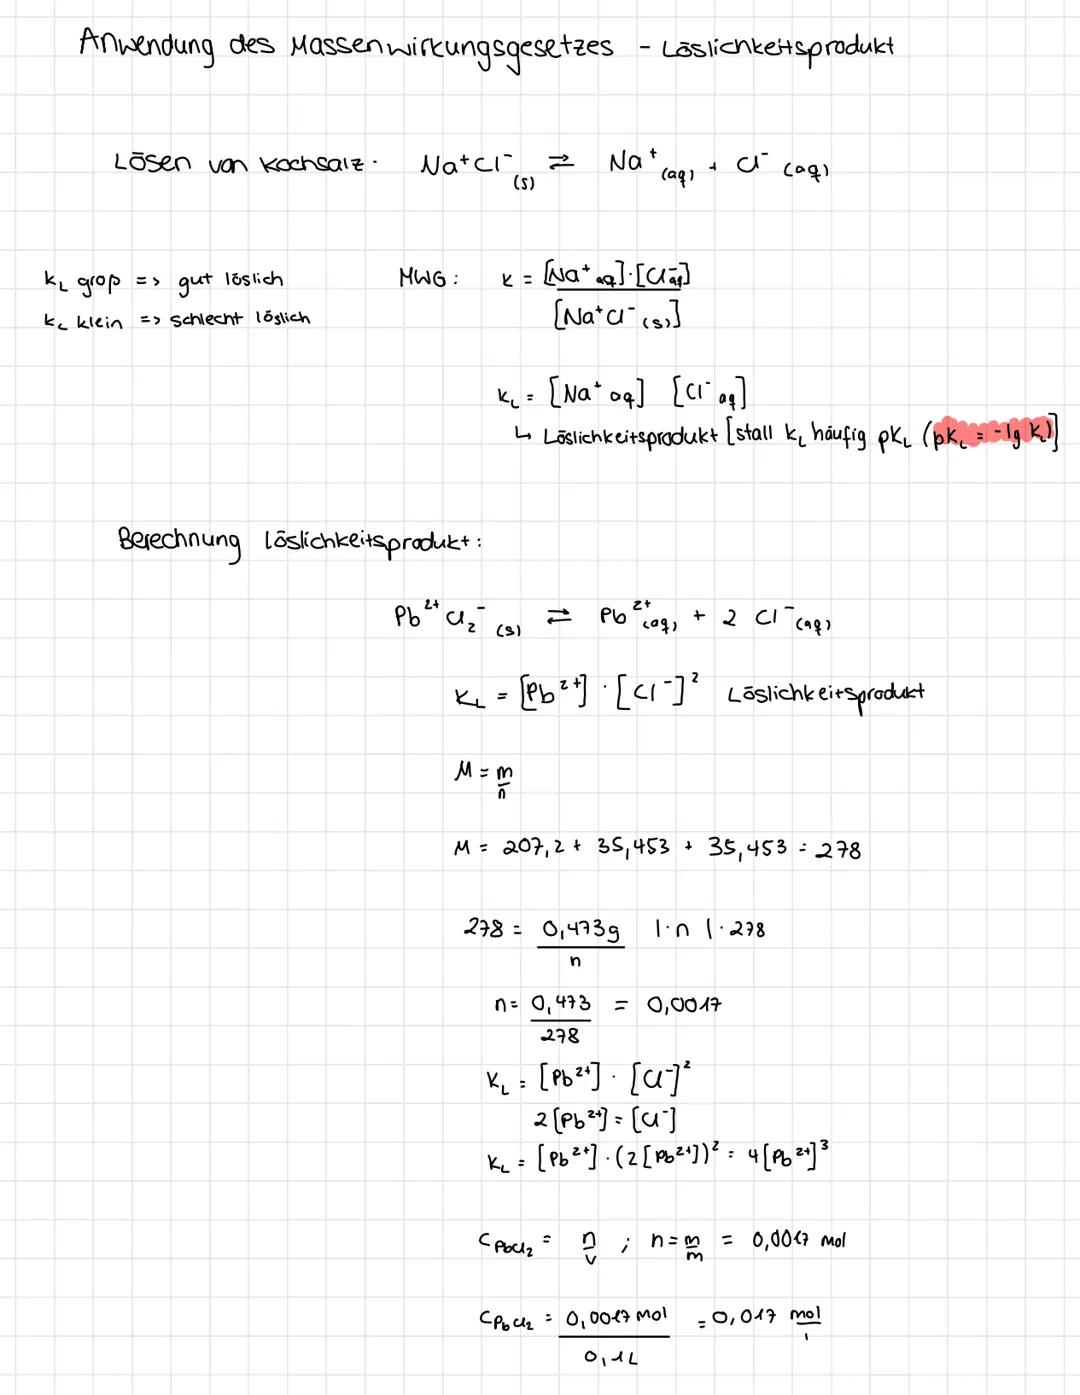 Anwendung des Massenwirkungsgesetzes - Löslichkeitsprodukt
Lösen von Kochsalz. Na⁺Cl⁻(s) ⇌ Na⁺(aq) + Cl⁻(aq)
kL groß => gut löslich
kL klein => schlecht löslich
MWG: K = [Na⁺aq]·[Cl⁻aq]
[Na⁺Cl⁻(s)]
KL = [Na⁺aq] [Cl⁻aq]
↳ Löslichkeitsprodukt [stall KL häufig pKL (pKL = -lg KL)]
Berechnung Löslichkeitsprodukt:
Pb²⁺Cl₂⁻(s) ⇌ Pb²⁺(aq) + 2 Cl⁻(aq)
KL = [Pb²⁺] · [Cl⁻]² Löslichkeitsprodukt
M = m
n
M = 207,2 + 35,453 + 35,453 = 278
278 = 0,473g |·n |·278
n
n = 0,473 = 0,0017
278
KL = [Pb²⁺] · [Cl⁻]²
2[Pb²⁺] = [Cl⁻]
KL = [Pb²⁺]·(2[Pb²⁺])² = 4[Pb²⁺]³
C PbCl₂ = n ; n = m = 0,0017 mol
V m
C PbCl₂ = 0,0017 mol = 0,017 mol
0,1L l